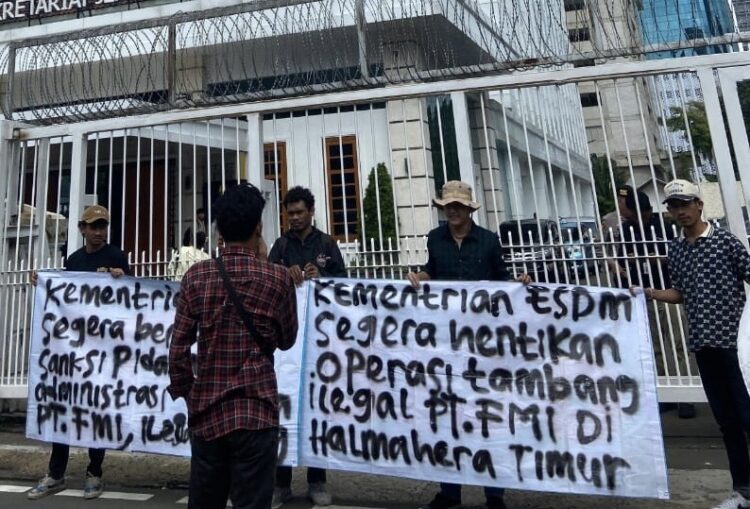 KRETARIAT
Kementria
Segera be
Sanksi Pida
administras
PT. FMI, ILe
KEMENTRIAN ESDM
Segera hentikan
operasi tambang
ilegal PT. FMI Di
Halmahera Timur